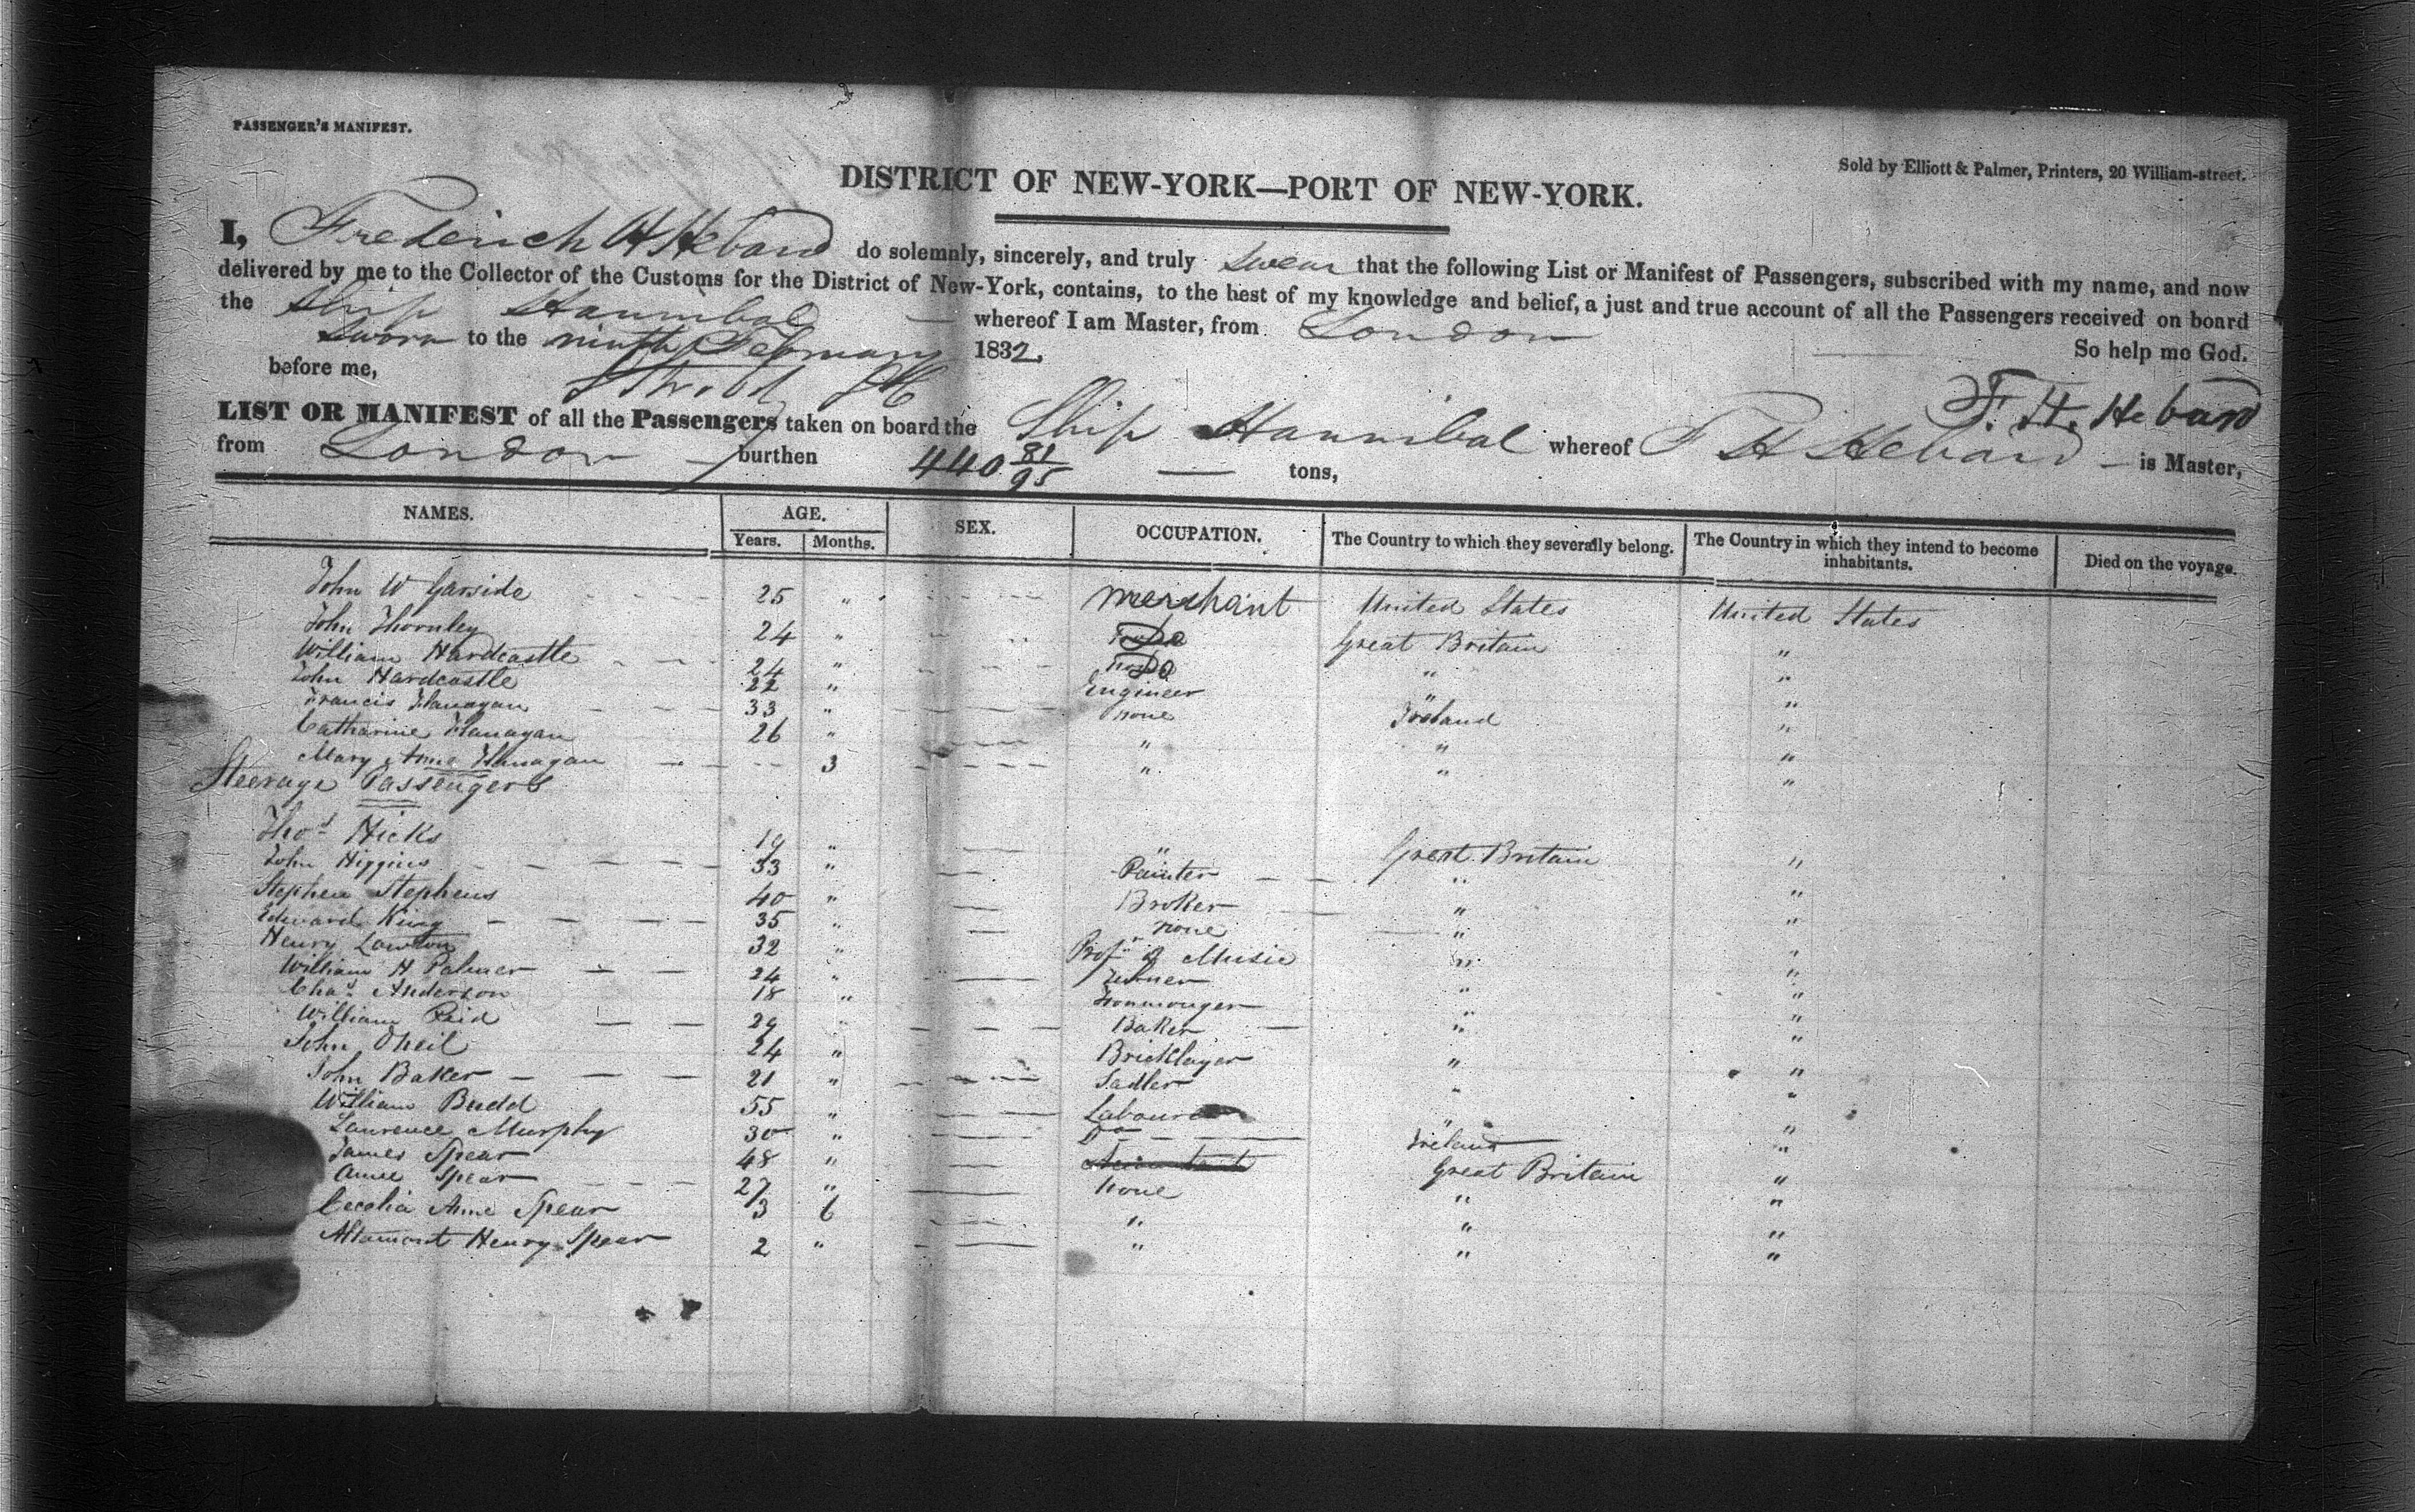 PASSENGER'S MANIFEST.
Sold by Elliott & Palmer, Printers, 20 William-street.
DISTRICT OF NEW-YORK—PORT OF NEW-YORK.
I, Frederich H Hebard do solemnly, sincerely, and truly swear that the following List or Manifest of Passengers, subscribed with my name, and now
delivered by me to the Collector of the Customs for the District of New-York, contains, to the best of my knowledge and belief, a just and true account of all the Passengers received on board
the Ship Hannibal — whereof I am Master, from London
Sworn to the ninth February 1832. So help me God.
before me,
F. H. Hebard
LIST OR MANIFEST of all the Passengers taken on board the Ship Hannibal whereof F H Hebard — is Master,
from London — burthen 440 81/95 — tons,
NAMES. AGE. SEX. OCCUPATION. The Country to which they severally belong. The Country in which they intend to become inhabitants. Died on the voyage.
Years. Months.
John W Garside 25 " merchant United States United States
John Thornley 24 " Do Great Britain "
William Hardcastle 24 " Do " "
John Hardcastle 22 " Engineer " "
Francis Flanagan 33 " none Ireland "
Catharine Flanagan 26 " " " "
Mary Anne Flanagan 3 " " "
Steerage Passengers
Thos Hicks 19 " " Great Britain "
John Higgins 33 " Painter " "
Stephen Stephens 40 " Broker " "
Edward King 35 " none " "
Henry Lawton 32 " Profr of Music " "
William H Palmer 24 " Turner " "
Chas Anderson 18 " Ironmonger " "
William Reid 29 " Baker " "
John Oneil 24 " Bricklayer " "
John Baker 21 " Sadler " "
William Budd 55 " Labourer " "
Laurence Murphy 30 " Do Ireland "
James Spear 48 " Great Britain "
Anne Spear 27 " none " "
Cecelia Anne Spear 3 6 " " "
Altamont Henry Spear 2 " " " "